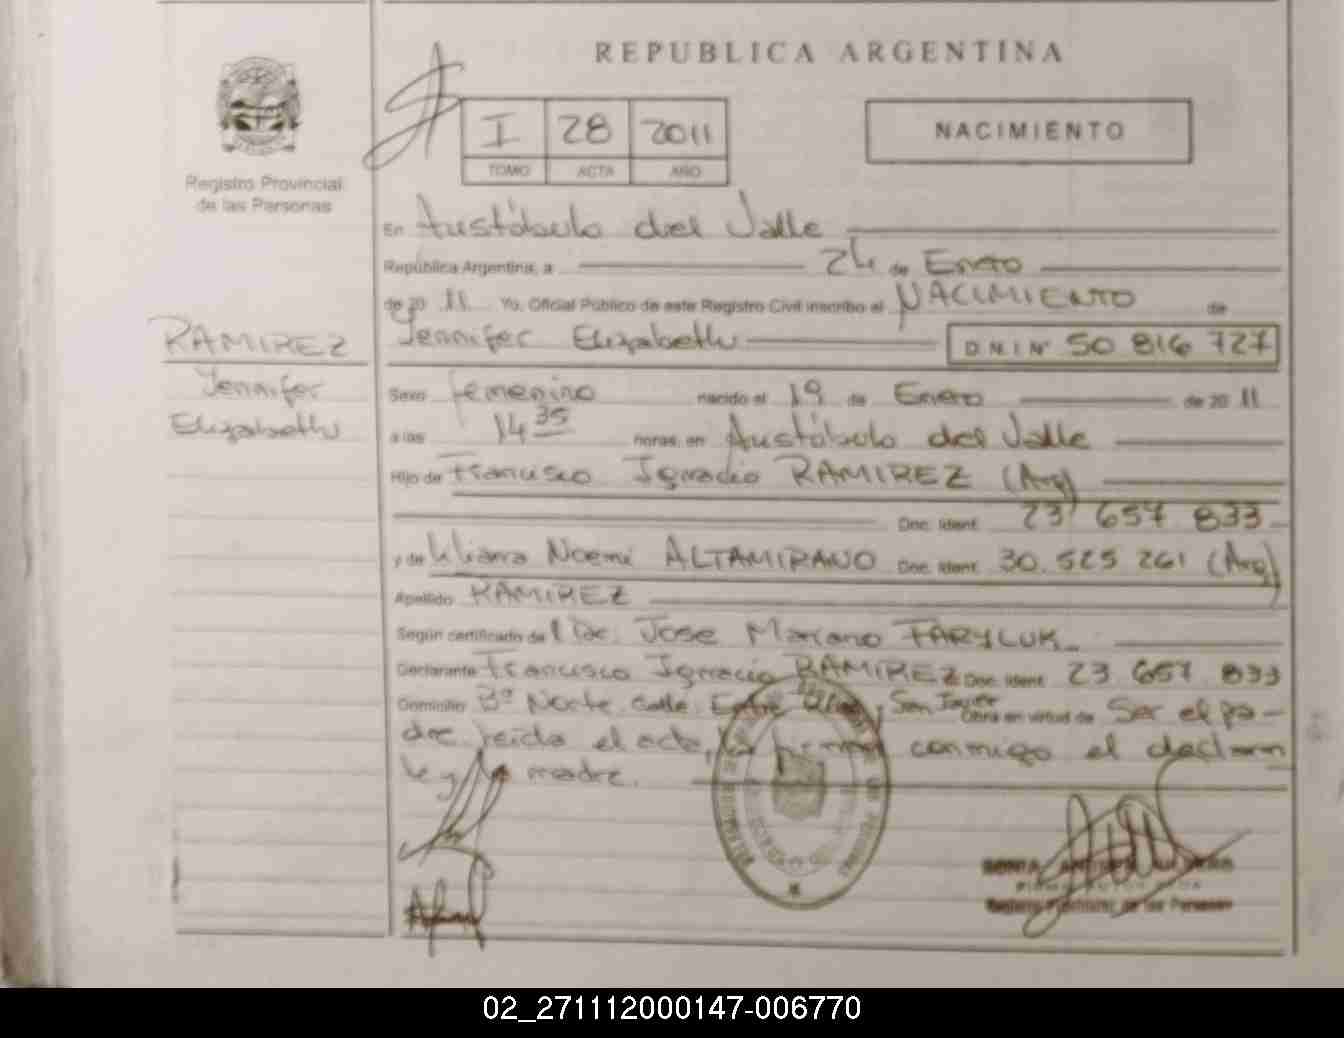 REPUBLICA ARGENTINA
I 28 2011
TOMO ACTA AÑO
NACIMIENTO
Registro Provincial
de las Personas
En Aristóbulo del Valle
República Argentina, a 24 de Enero
de 20 11 Yo, Oficial Público de este Registro Civil inscribo el NACIMIENTO de
Jennifer Elizabeth D.N.I Nº 50 816 727
RAMIREZ
Jennifer
Elizabeth
Sexo femenino nacido el 19 de Enero de 20 11
a las 14 35 horas, en Aristóbulo del Valle
Hijo de Francisco Ignacio RAMIREZ (Arg)
Doc. Ident. 23 657 833
y de Liliana Noemi ALTAMIRANO Doc. Ident. 30.525 261 (Arg)
Apellido RAMIREZ
Según certificado de Dr. Jose Mariano
Declarante Francisco Ignacio RAMIREZ Doc. Ident. 23 657 833
Domicilio Bº Norte calle Entre San Javier Obra en virtud de Ser el pa-
dre leida el acta, firman conmigo el declaran
te y la madre.
Registro Provincial de las Personas
02_271112000147-006770